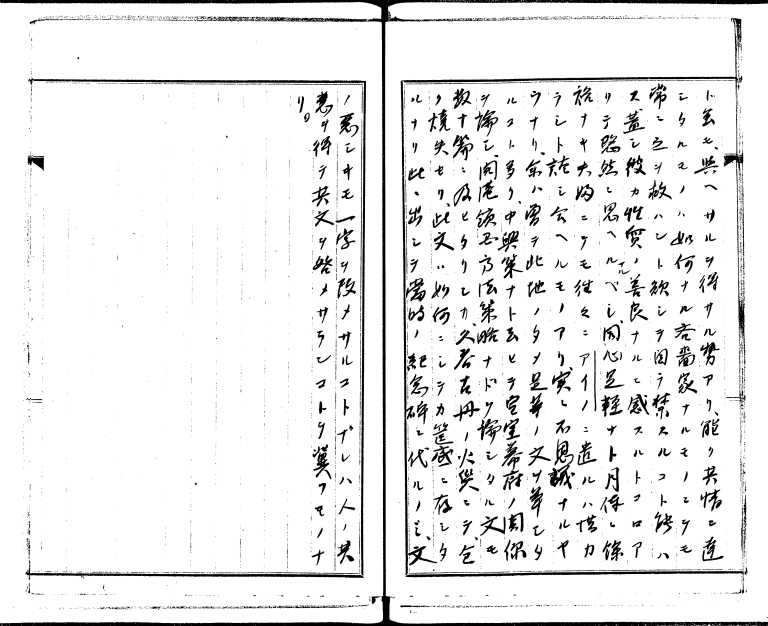 ト雖モ、与ヘサルヲ得サル勢アリ、能ク其情ニ達
シタルモノハ如何ナル吝嗇家ナルモノニテモ
常ニ之ヲ救ハント欲シテ固ラ禁スルコト能ハ
ス蓋シ彼カ性質ノ善良ナルニ感スルトコロア
リテ隠然ニ思ヘルナルベシ、同心足軽ナト月俸ニ餘
裕ナキ夫婦ニテモ往々ニアイノニ遣ルハ惜カ
ラシト談シ合ヘルモノアリ実ニ不思議ナルヤ
ウナリ、余ハ曽テ此地ノタメ是等ノ文ヲ草セタ
ルコト多ク、中興策ナト云ヒテ官室幕府ノ関係
ヲ論シ、開港鎖国ノ方法策略ナドヲ論シタル文モ
数十篇ニ及ビタリシカ、久春古丹ノ火災ニテ全
ク焼失セリ、此文ハ如何ニシテカ筐底ニ存シタ
ルナリ此ニ出シテ当時ノ紀念碑ニ代ルノミ、文
ノ悪シキモ一字ヲ改メサルコトナレハ人ノ其
意ヲ得テ其文ヲ咎メサランコトヲ冀フモノナ
リ。